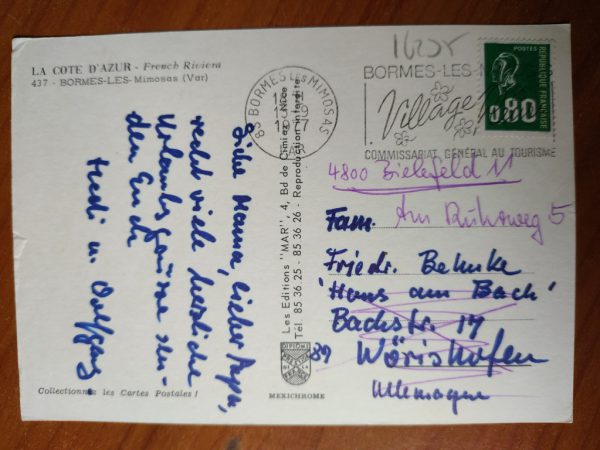 LA COTE D'AZUR - French Riviera
437 - BORMES-LES-Mimosas (Var)
Liebe Mama, lieber Papa,
recht viele herzliche
Urlaubsgrüsse sen-
den Euch
Hedi u. Wolfgang.
Collectionnez les Cartes Postales !
83 BORMES LES MIMOSAS
VAR
Les Editions "MAR", 4, Bd de Cimiez - Nice
Tél. 85 36 25 - 85 36 26 - Reproduction interdite
MEXICHROME
BORMES-LES-
Village
COMMISSARIAT GÉNÉRAL AU TOURISME
POSTES
REPUBLIQUE FRANÇAISE
0,80
4800 Bielefeld 11
Fam. Am Ruhweg 5
Friedr. Behnke
'Haus am Bach'
Bachstr. 17
89 Wörishofen
Allemagne